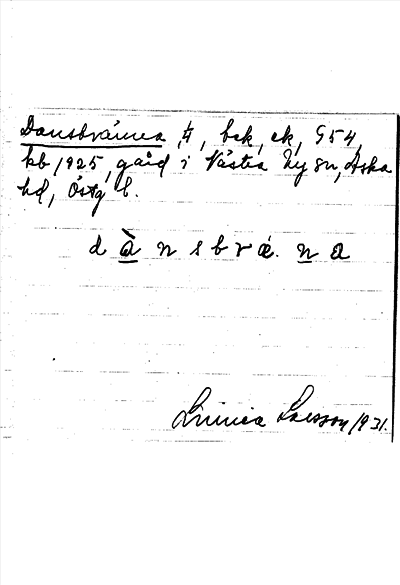 Dansbränna, #, bek, ek, G54,
kb 1925, gård i Västra Ny sn, Aska
hd, Östg l.
d à n s b r æ. n a
Linnea Larsson 1931.